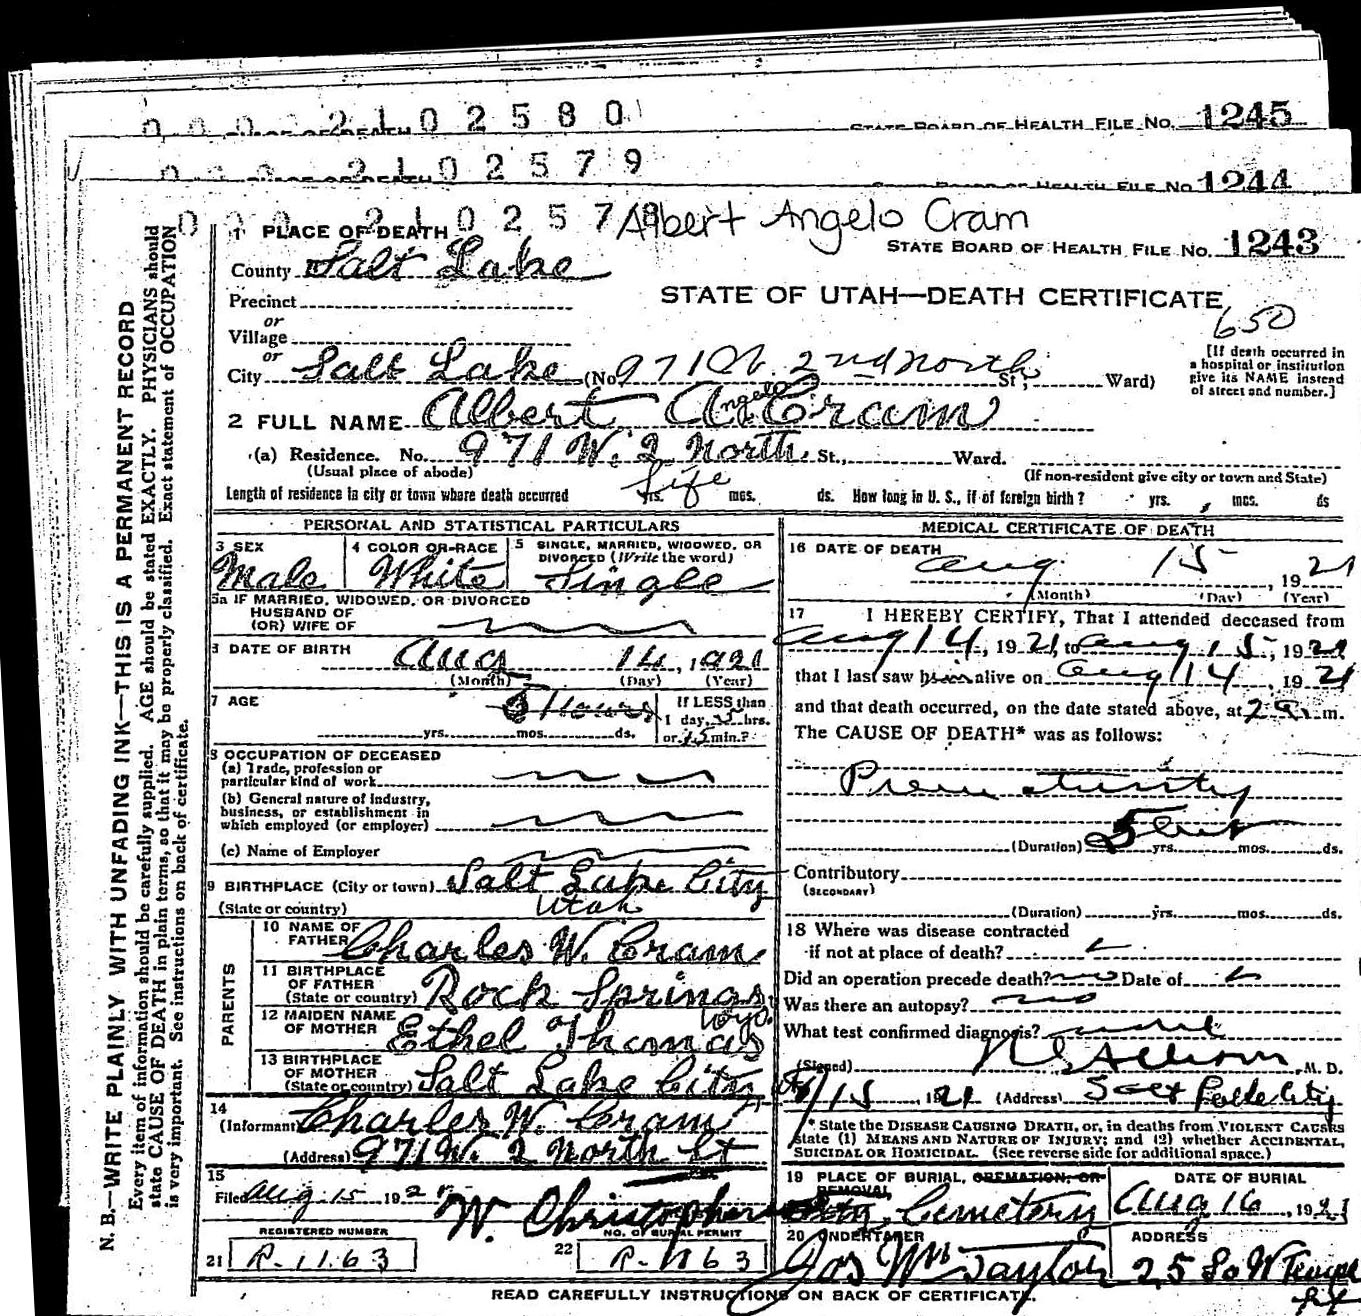 0 0 0 2 1 0 2 5 8 0
STATE BOARD OF HEALTH FILE NO. 1245
0 0 0 2 1 0 2 5 7 9
STATE BOARD OF HEALTH FILE NO. 1244
0 0 0 2 1 0 2 5 7 8
Albert Angelo Cram
1 PLACE OF DEATH
STATE BOARD OF HEALTH FILE No. 1243
County Salt Lake
STATE OF UTAH—DEATH CERTIFICATE
Precinct
650
or
Village
or
City Salt Lake (No 971 W. 2nd North St; Ward)
[If death occurred in a hospital or institution give its NAME instead of street and number.]
2 FULL NAME Albert A. Cram
Angelo
(a) Residence. No. 971 W. 2 North St., Ward.
(Usual place of abode) (If non-resident give city or town and State)
Length of residence in city or town where death occurred Life yrs. mos. ds. How long in U. S., if of foreign birth? yrs. mos. ds
N. B.—WRITE PLAINLY WITH UNFADING INK—THIS IS A PERMANENT RECORD
Every item of information should be carefully supplied. AGE should be stated EXACTLY. PHYSICIANS should
state CAUSE OF DEATH in plain terms, so that it may be properly classified. Exact statement of OCCUPATION
is very important. See instructions on back of certificate.
PERSONAL AND STATISTICAL PARTICULARS
3 SEX
Male
4 COLOR OR RACE
White
5 SINGLE, MARRIED, WIDOWED, OR
DIVORCED (Write the word)
Single
5a IF MARRIED, WIDOWED, OR DIVORCED
HUSBAND OF
(OR) WIFE OF
6 DATE OF BIRTH
Aug 14, 1921
(Month) (Day) (Year)
7 AGE
5 Hours
yrs. mos. ds.
If LESS than
1 day, 5 hrs.
or 15 min.?
8 OCCUPATION OF DECEASED
(a) Trade, profession or
particular kind of work
(b) General nature of industry,
business, or establishment in
which employed (or employer)
(c) Name of Employer
9 BIRTHPLACE (City or town) Salt Lake City
(State or country) Utah
PARENTS
10 NAME OF
FATHER Charles W. Cram
11 BIRTHPLACE
OF FATHER
(State or country) Rock Springs
Wyo.
12 MAIDEN NAME
OF MOTHER Ethel Thomas
13 BIRTHPLACE
OF MOTHER
(State or country) Salt Lake City
14
(Informant Charles W. Cram
(Address) 971 W. 2 North St
15
Filed Aug. 15, 192
W. Christopherson
REGISTERED NUMBER
21 R. 1163
NO. OF BURIAL PERMIT
22 R. 1163
MEDICAL CERTIFICATE OF DEATH
16 DATE OF DEATH
Aug. 15, 1921
(Month) (Day) (Year)
17 I HEREBY CERTIFY, That I attended deceased from
Aug 14, 1921, to Aug 15, 1921
that I last saw him alive on Aug 14, 1921
and that death occurred, on the date stated above, at 2 a. m.
The CAUSE OF DEATH* was as follows:
Prematurity
(Duration) 5 yrs. mos. ds.
Contributory
(SECONDARY)
(Duration) yrs. mos. ds.
18 Where was disease contracted
if not at place of death?
Did an operation precede death? no Date of
Was there an autopsy? no
What test confirmed diagnosis?
(Signed) M. D.
8/15 1921 (Address) Salt Lake City
* State the DISEASE CAUSING DEATH, or, in deaths from VIOLENT CAUSES
state (1) MEANS AND NATURE OF INJURY; and (2) whether ACCIDENTAL,
SUICIDAL OR HOMICIDAL. (See reverse side for additional space.)
19 PLACE OF BURIAL, CREMATION, OR
REMOVAL
City Cemetery
DATE OF BURIAL
Aug 16, 1921
20 UNDERTAKER
Jos Wm Taylor
ADDRESS
25 So W Temple
READ CAREFULLY INSTRUCTIONS ON BACK OF CERTIFICATE.